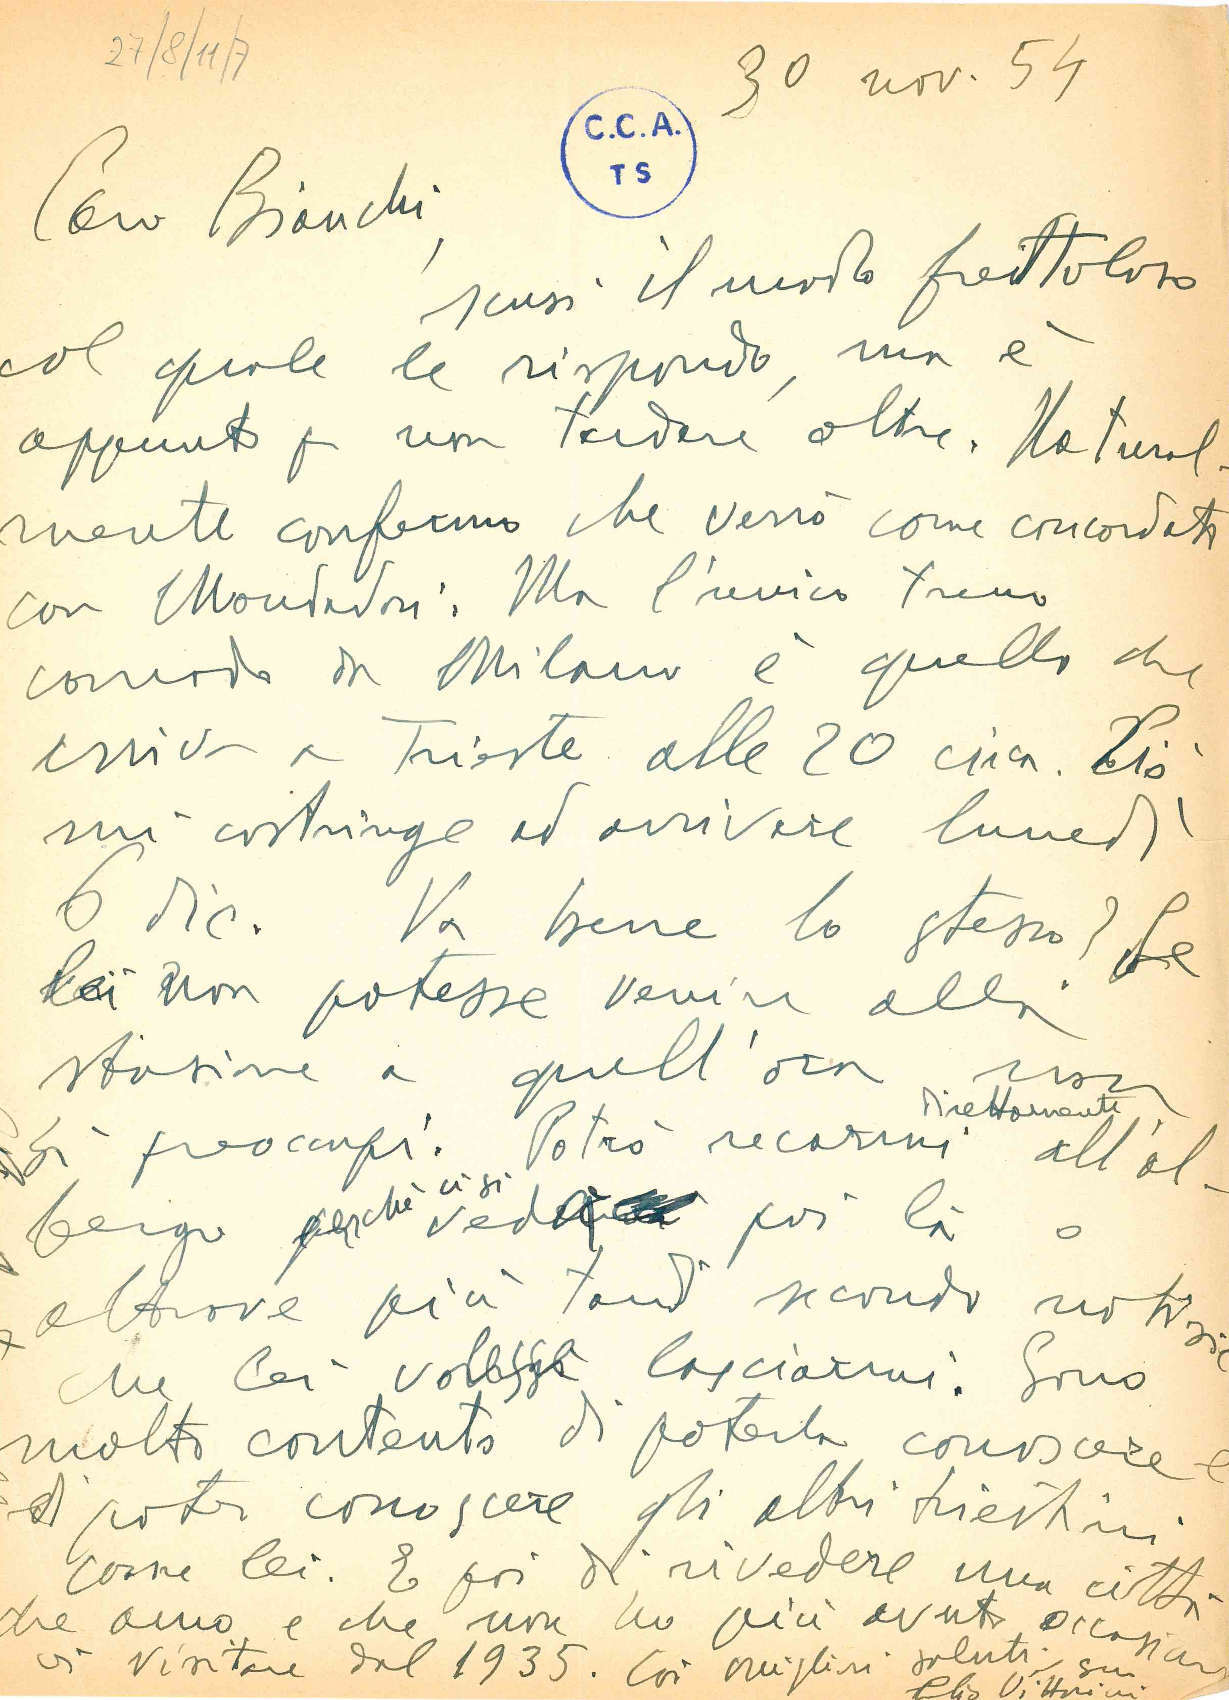 27/8/11/7
30 nov. 54
C.C.A.
TS
Caro Bianchi,
scusi il modo frettoloso
col quale le rispondo, ma è
appunto p non tardare oltre. Natural-
mente confermo che verrò come concordato
con Mondadori. Ma l'unico treno
comodo da Milano è quello che
arriva a Trieste alle 20 circa. Ciò
mi costringe ad arrivare lunedì
6 dic. Va bene lo stesso? Se
lei non potesse venire alla
stazione a quell'ora non
si preoccupi. Potrò recarmi direttamente all'al-
bergo perchè ci si veda poi là o
altrove più tardi secondo notizie
che lei volesse lasciarmi. Sono
molto contento di poterla conoscere e
di poter conoscere gli altri triestini
come lei. E poi di rivedere una città
che amo e che non ho più avuto occasione
di visitare dal 1935. Coi migliori saluti, suo
Elio Vittorini